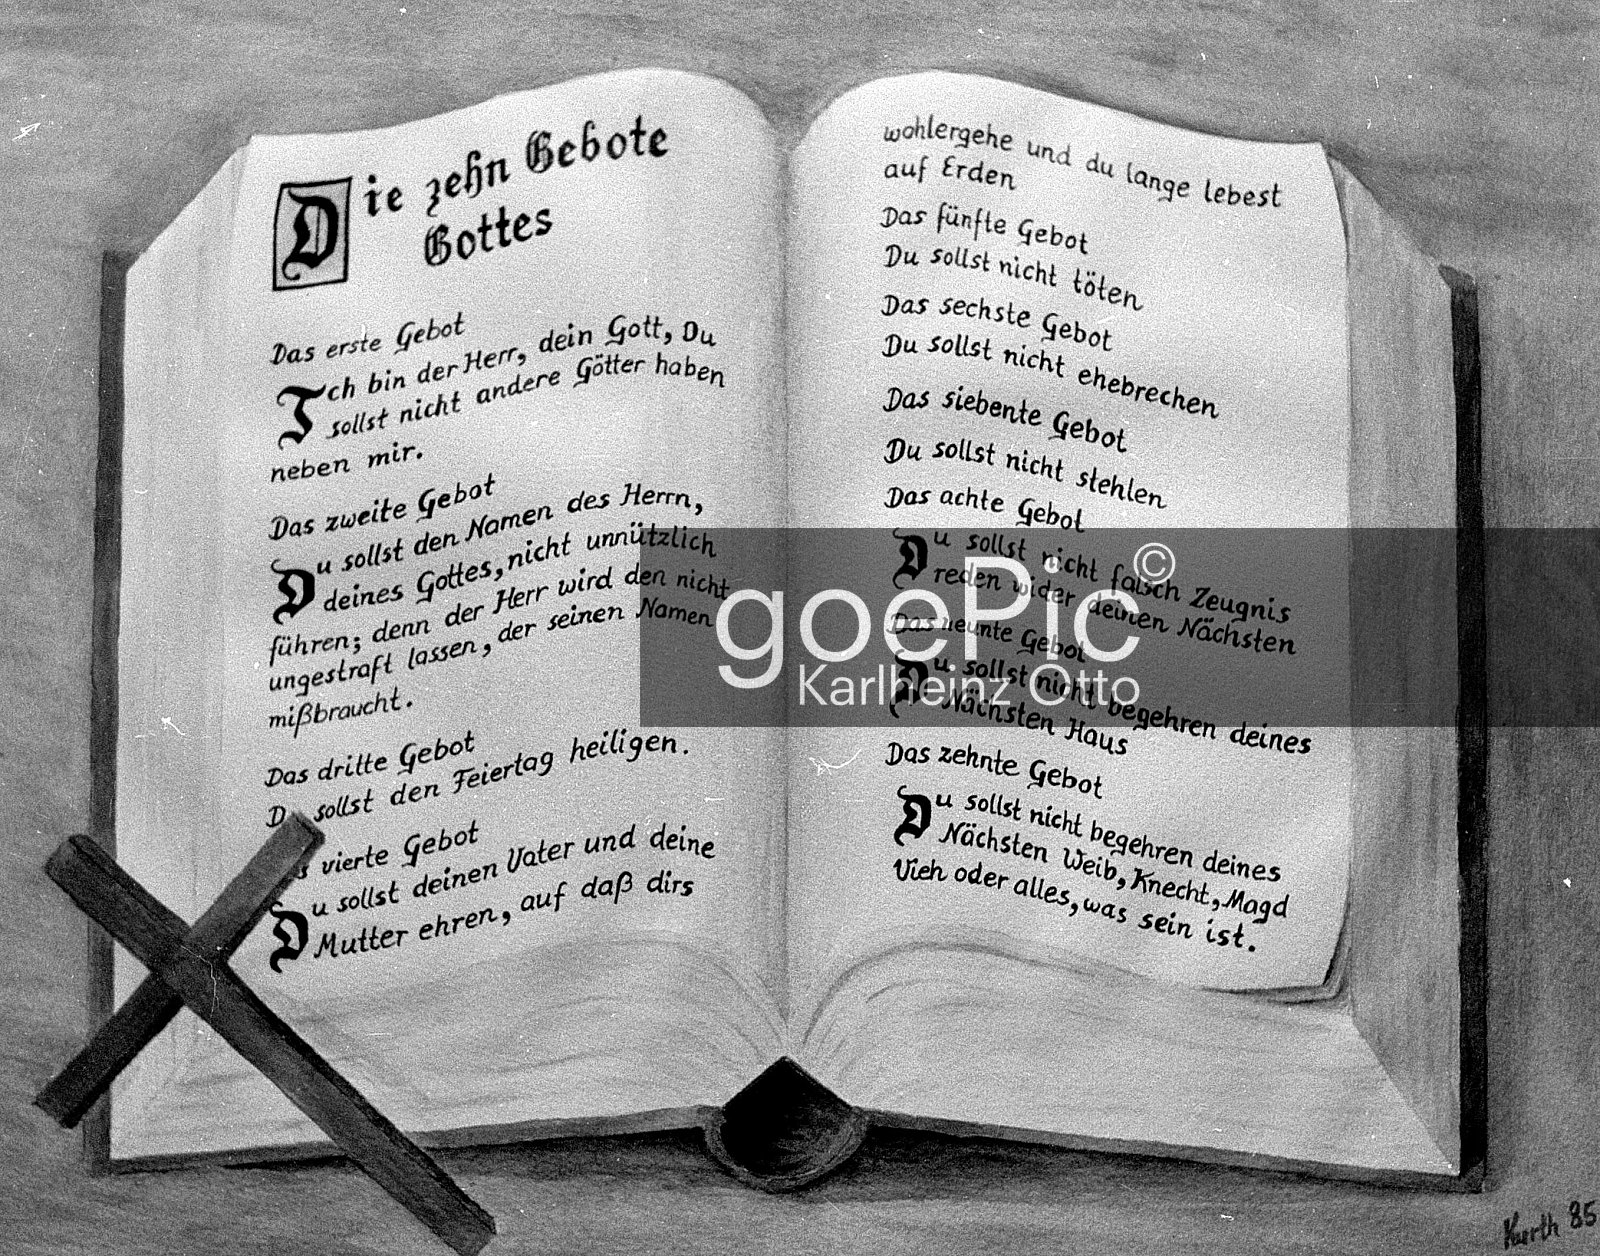 Die zehn Gebote
Gottes
Das erste Gebot
Ich bin der Herr, dein Gott, Du
sollst nicht andere Götter haben
neben mir.
Das zweite Gebot
Du sollst den Namen des Herrn,
deines Gottes, nicht unnützlich
führen; denn der Herr wird den nicht
ungestraft lassen, der seinen Namen
mißbraucht.
Das dritte Gebot
D sollst den Feiertag heiligen.
s vierte Gebot
Du sollst deinen Vater und deine
Mutter ehren, auf daß dirs
wohlergehe und du lange lebest
auf Erden
Das fünfte Gebot
Du sollst nicht töten
Das sechste Gebot
Du sollst nicht ehebrechen
Das siebente Gebot
Du sollst nicht stehlen
Das achte Gebot
Du sollst nicht falsch Zeugnis
reden wider deinen Nächsten
Das neunte Gebot
Du sollst nicht begehren deines
Nächsten Haus
Das zehnte Gebot
Du sollst nicht begehren deines
Nächsten Weib, Knecht, Magd
Vieh oder alles, was sein ist.
goePic ©
Karlheinz Otto
Kurth 85